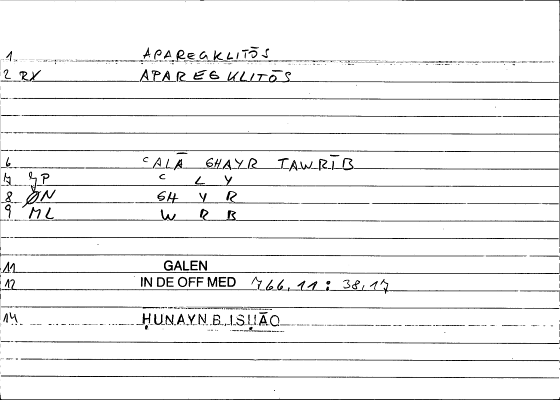 1 APAREGKLITŌS
2 RX APAREGKLITŌS
6 ᶜALĀ GHAYR TAWRĪB
7 JP ᶜ L Y
8 ØN GH Y R
9 ML W R B
11 GALEN
12 IN DE OFF MED 766,11 : 38,17
14 ḤUNAYN B. ISḤĀQ